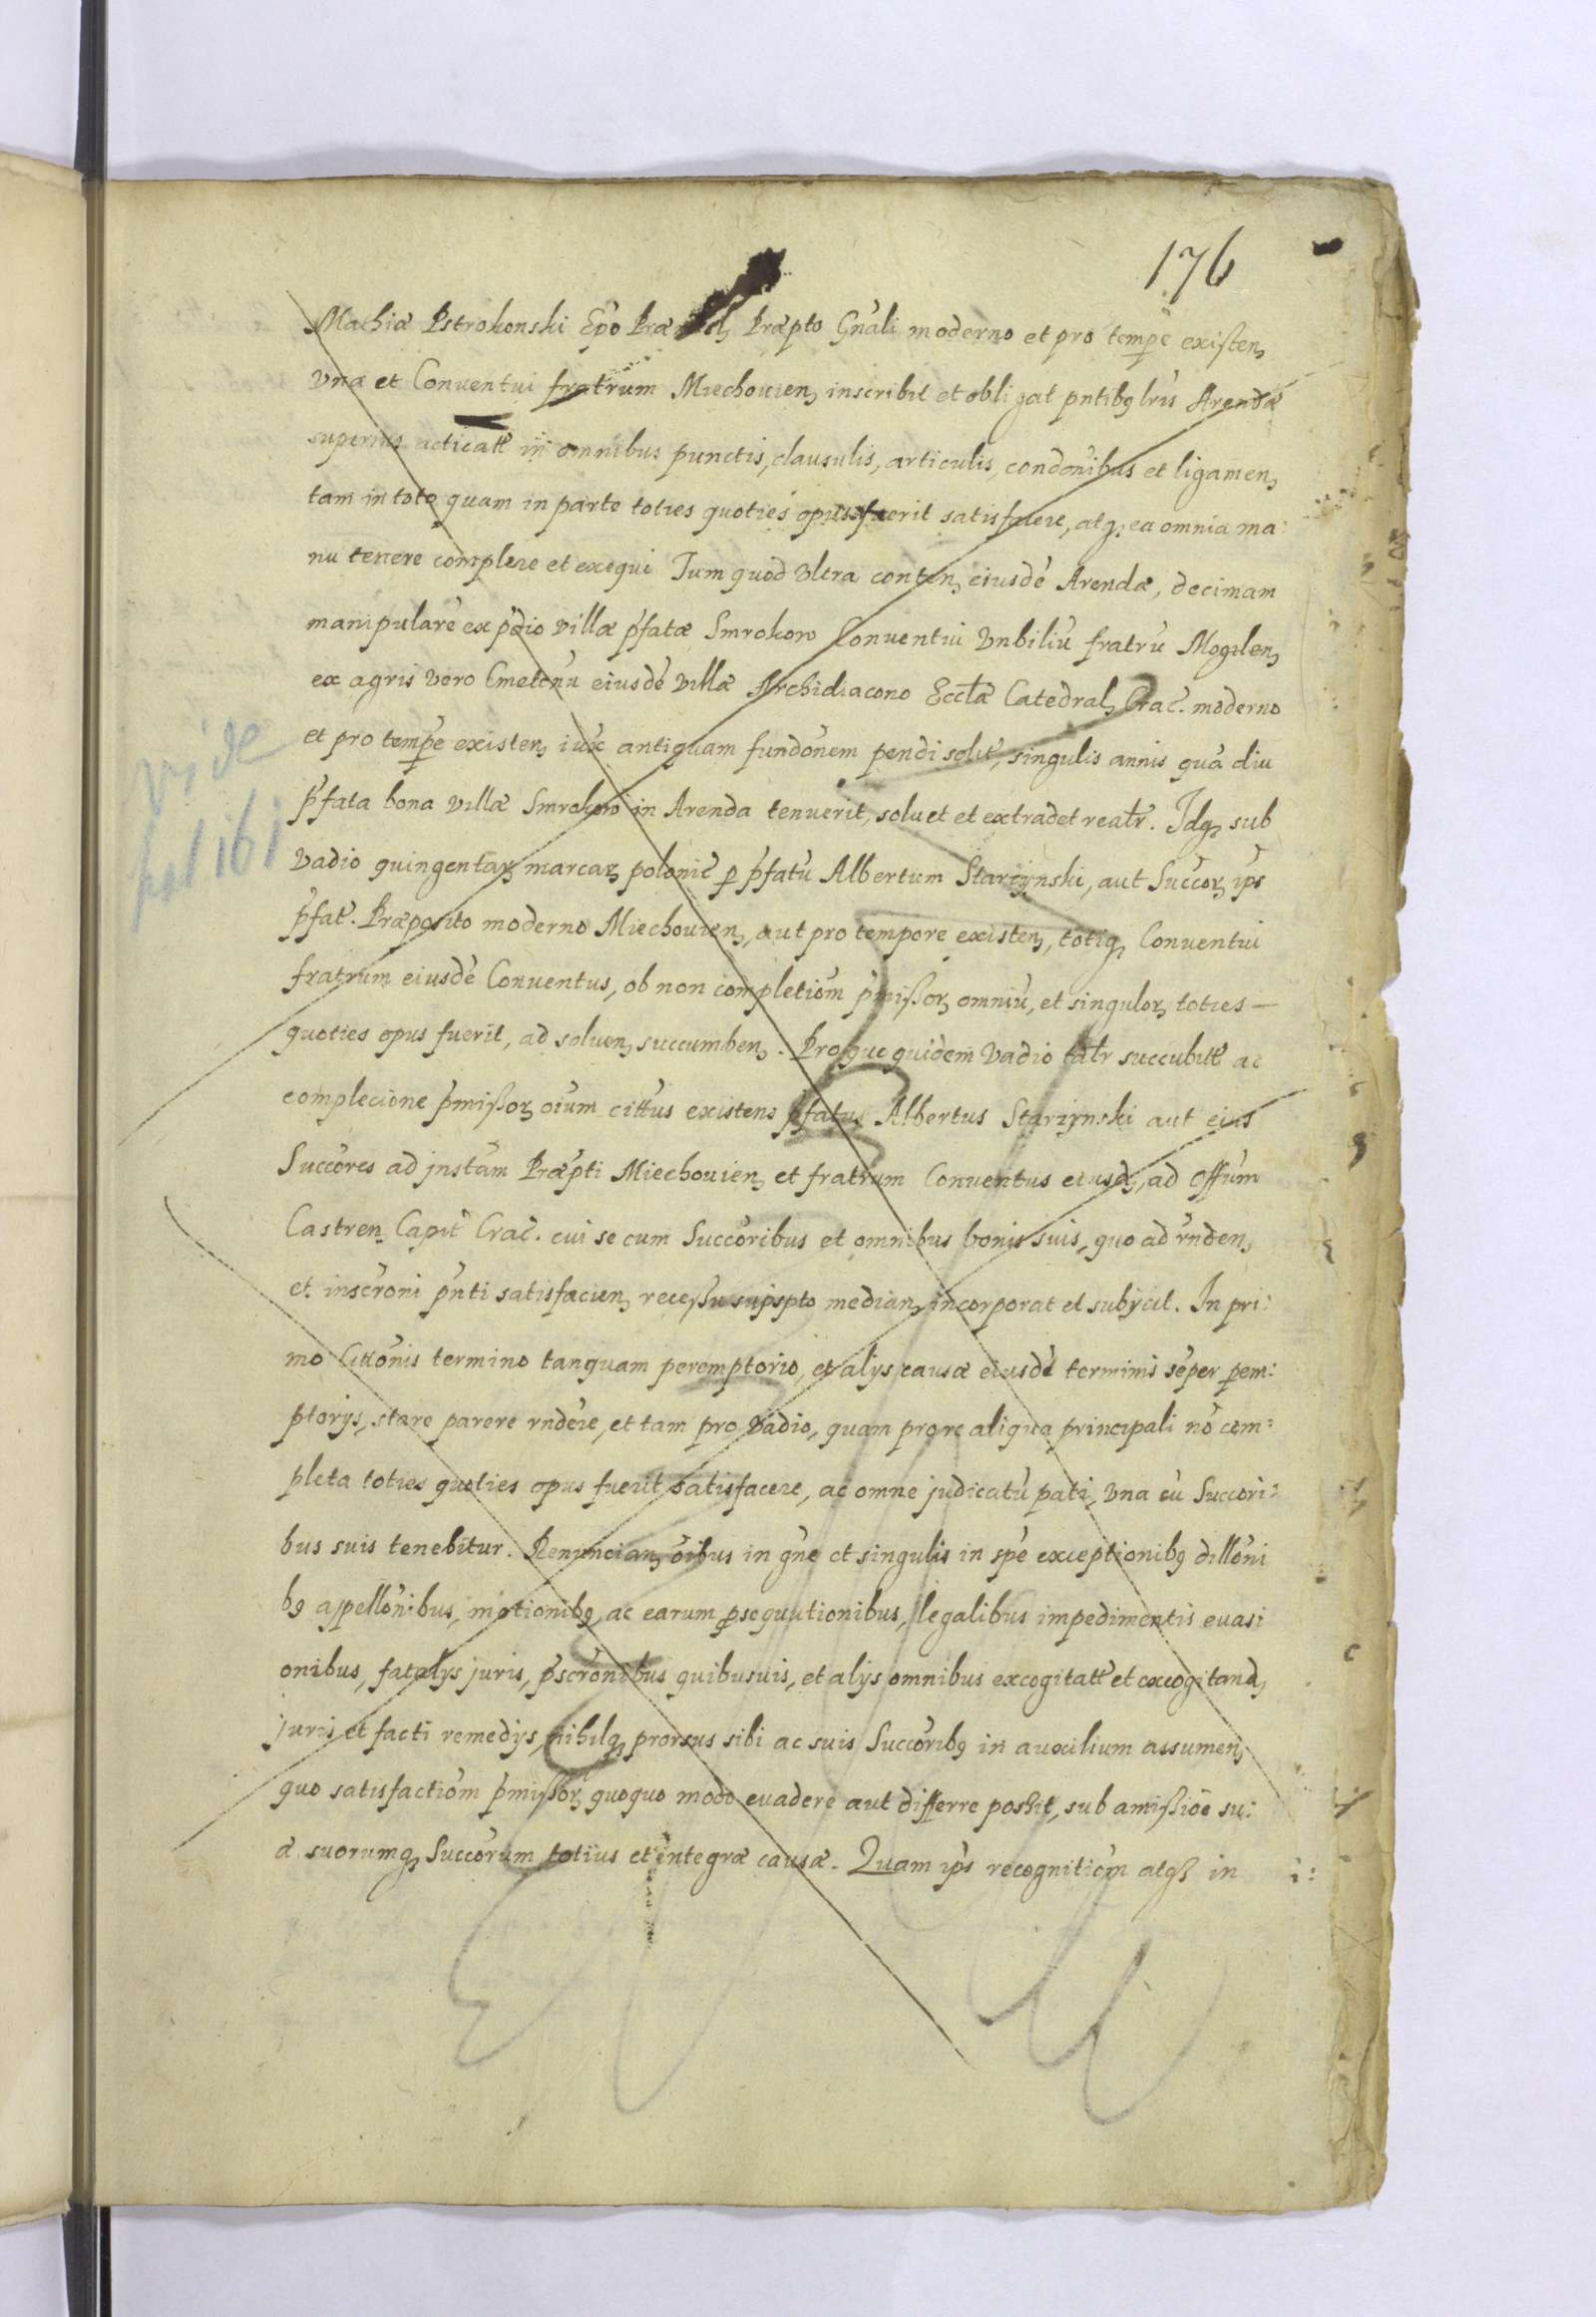 176
Mathiæ Pstrokonski Ep̃o Præ Præpto Gñali moderno et pro tempẽ existenꝫ
Vna et Conventui fratrum Miechouienꝫ inscribit et obligat pñtibꝯ lr̃is Arendæ
superius acticatt̃ in omnibus punctis, clausulis, articulis, condõnibus et ligamenꝫ
tam in toto quam in parte toties quoties opus fuerit satisfacere, atqꝫ ea omnia ma:
nu tenere complere et exequi Tum quod Vltra contenꝫ eiusdẽ Arendæ, decimam
manipularẽ ex p̃dio villæ p̃fatæ Smrokow Conventui Vnbiliũ fratrũ Mogilenꝫ
ex agris vero Cmetonũ eiusdẽ villæ Archidiacono Eccłæ Catedralꝫ Crac̃. moderno
et pro tempẽ existenꝫ iux̃ antiquam fundõnem pendi solit̃, singulis annis quã diu
p̃fata bona villæ Smrokow in Arenda tenuerit, soluet et extradet realr̃. Idqꝫ sub
Vadio quingentaꝝ marcaꝝ polonic̃ ꝑ p̃fatũ Albertum Starzynski, aut Succoꝝ ip̃s
p̃fat̃. Præposito moderno Miechouienꝫ, aut pro tempore existenꝫ, totiqꝫ Conventui
fratrum eiusdẽ Conventus, ob non completiõm p̃missoꝝ omniũ, et singuloꝝ toties —
quoties opus fuerit, ad soluenꝫ succumbenꝫ. Pro quo quidem Vadio talr̃ succubitt̃ ac
complecione p̃missoꝝ oĩum citt̃us existens p̃fatus Albertus Starzynski aut eius
Succõres ad jnstãm Præpti Miechouienꝫ et fratrum Conventus eiusdꝫ, ad Offũm
Castrenꝫ Capit̃ Crac̃. cui se cum Succõribus et omnibus bonis suis, quo ad rñdenꝫ
et inscr̃oni p̃nti satisfacienꝫ recessu supspto medianꝫ incorporat et subijcit. In pri:
mo Cittõnis termino tanquam peremptorio, et alijs causæ eiusdẽ terminis sẽper ꝑem:
ptorijs, stare parere rñdere, et tam pro Vadio, quam pro re aliqua principali nõ com:
pleta toties quoties opus fuerit satisfacere, ac omne judicatũ pati, Vna cũ Succori:
bus suis tenebitur. Renuncianꝫ õibus in gñe et singulis in spẽ exceptionibꝯ dillõni
bꝯ appellõnibus, motionibꝯ, ac earum ꝓsequutionibus, legalibus impedimentis euasi
onibus, fatalijs juris, p̃scrõnibus quibusuis, et alijs omnibus excogitatt̃ et excogitandꝫ
juris et facti remedijs, nihilqꝫ prorsus sibi ac suis Succõribꝯ in auxilium assumenꝫ
quo satisfactiõm p̃missoꝝ quoquo modo euadere aut differre possit, sub amissiõe su:
æ suorumqꝫ Succõrum totius et integræ causæ. Quam ip̃s recognitiõm atqꝫ in
vide
fol 161